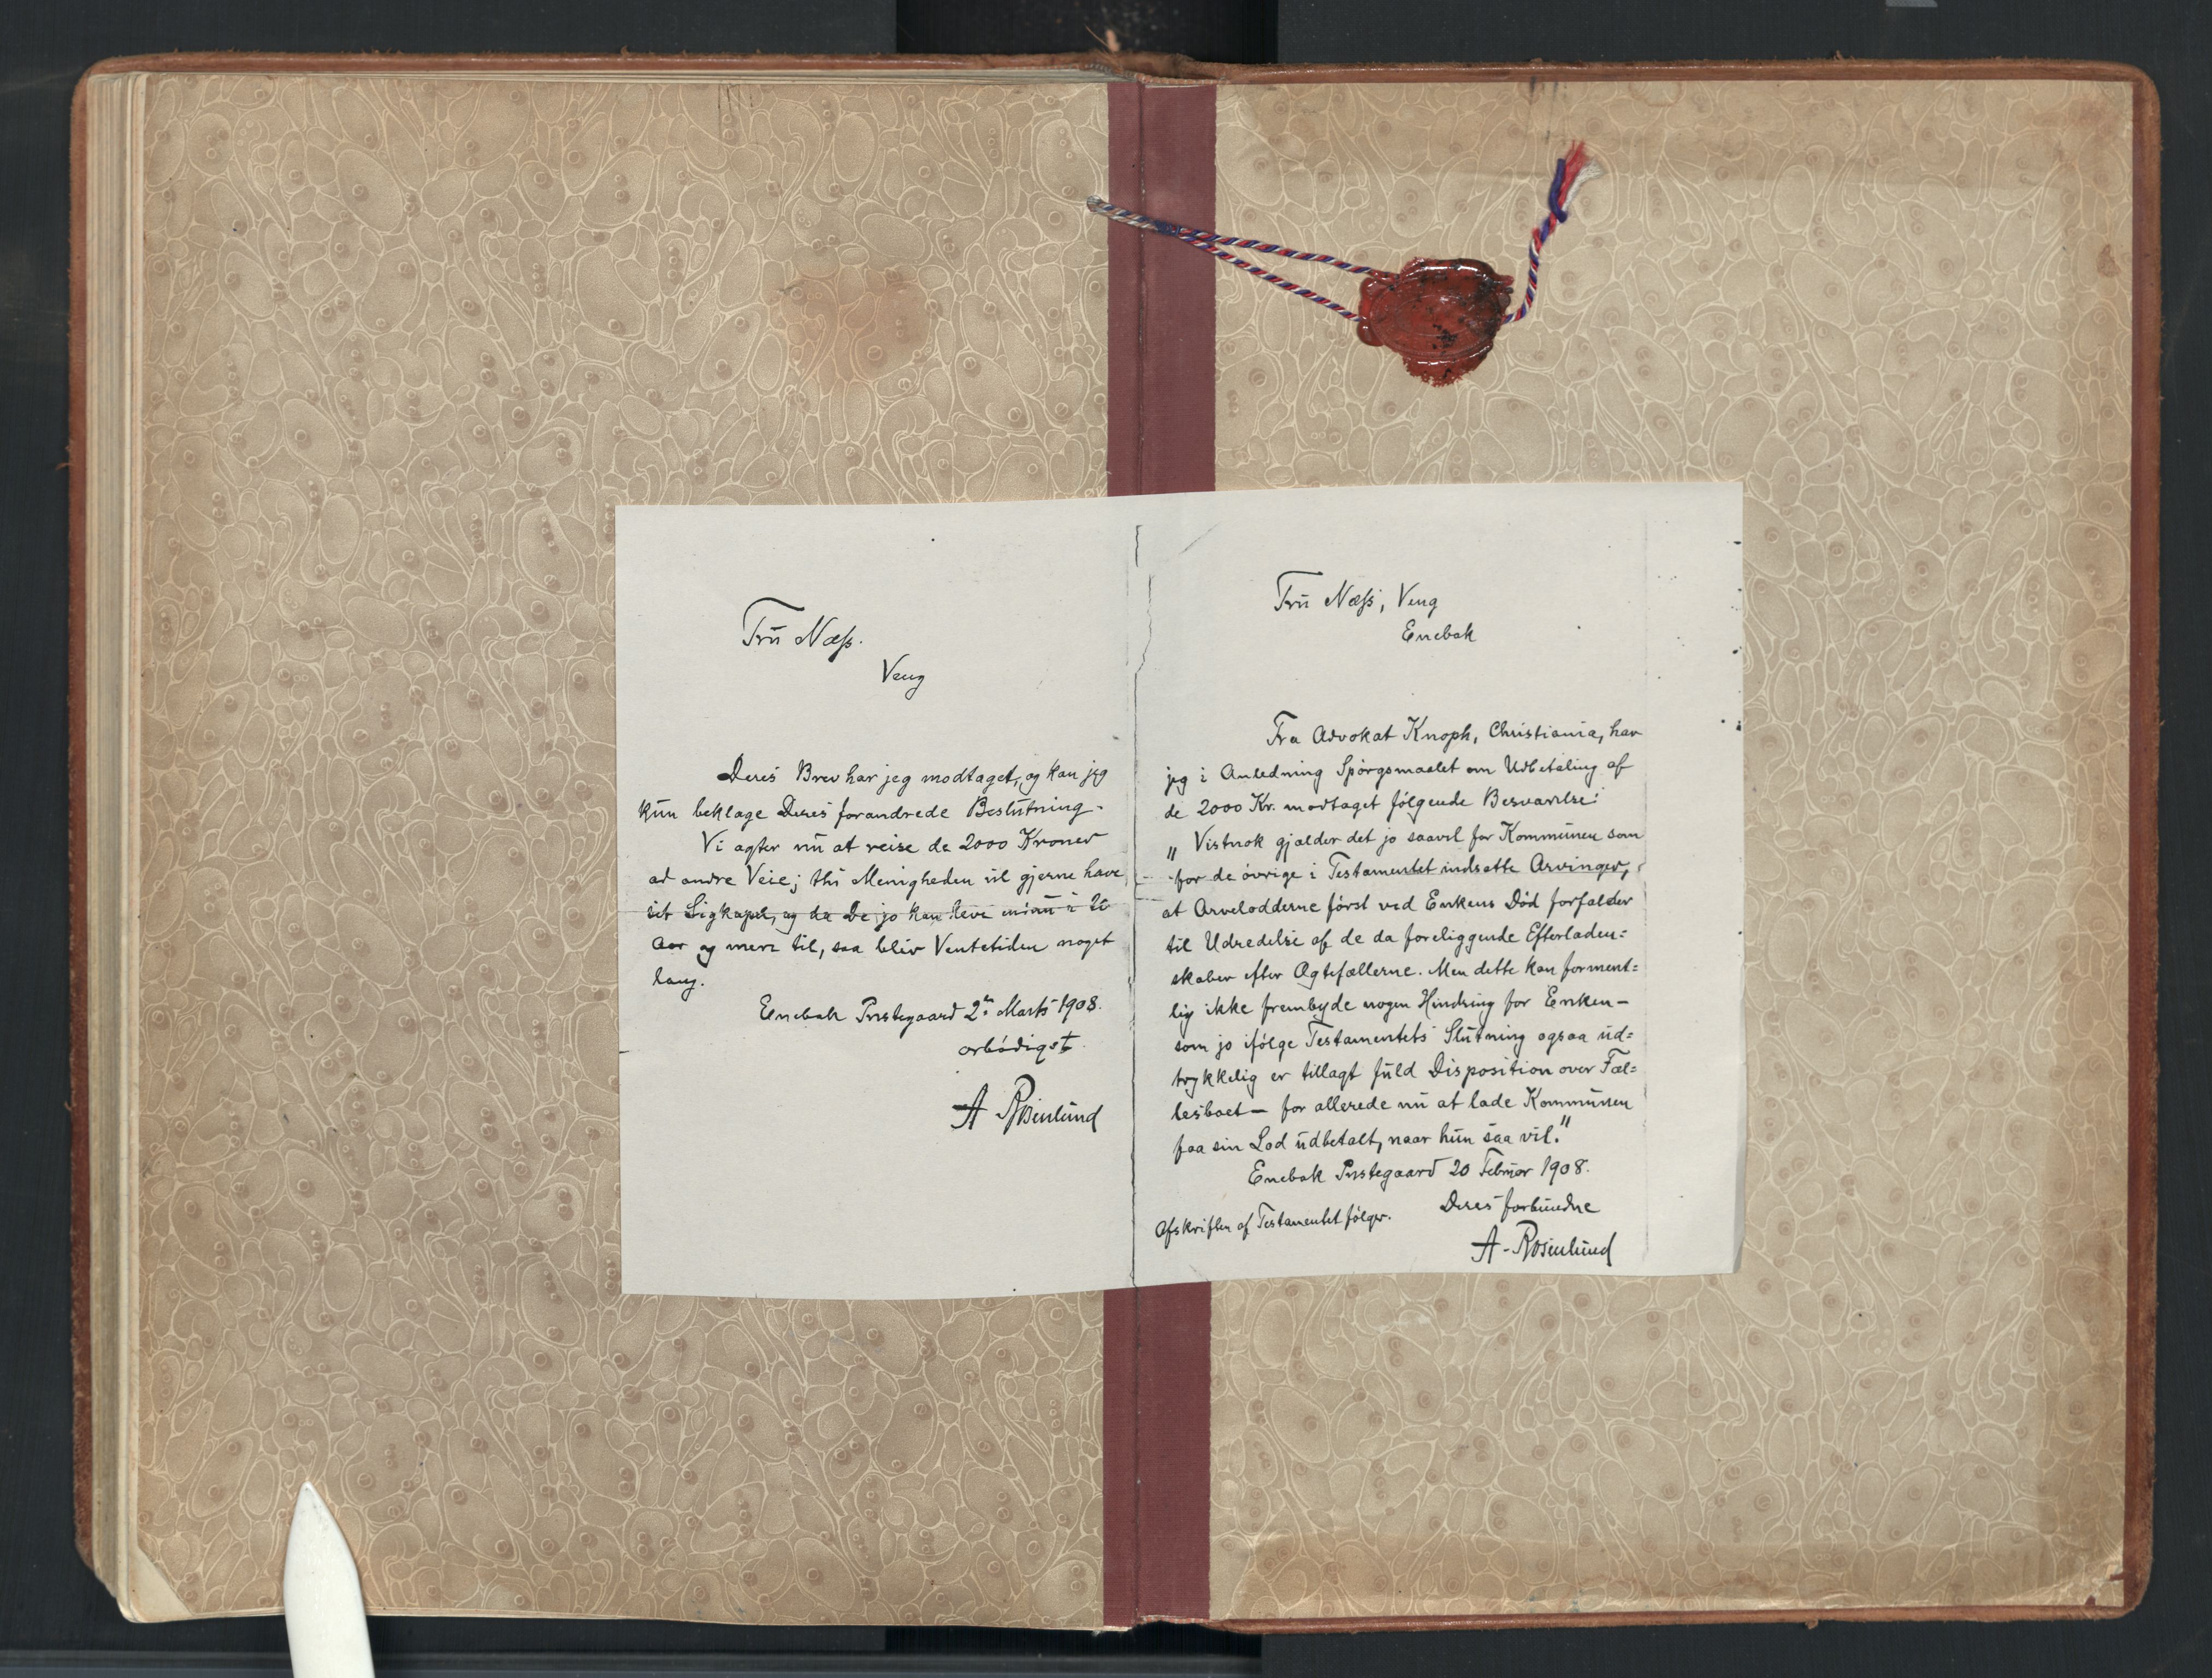 Fru Næss.
Veng
Deres Brev har jeg modtaget, og kan jeg
kun beklage Deres forandrede Beslutning.
Vi agter nu at reise de 2000 Kroner
ad andre Veie; thi Menigheden vil gjerne have
sit Ligkapel, og da De jo kan leve endnu i 20
Aar og mere til, saa bliv Ventetiden noget
lang.
Enebak Prestegaard 2en Marts 1908.
ærbødigst
A Rosenlund
Fru Næss, Veng
Enebak
Fra Advokat Knoph, Christiania, har
jeg i Anledning Spørgsmaalet om Udbetaling af
de 2000 Kr. modtaget følgende Besvarelse:
„Vistnok gjælder det jo saavel for Kommunen som
for de øvrige i Testamentet indsatte Arvinger,
at Arvelodderne først ved Enkens Død forfalder
til Udredelse af de da foreliggende Efterladen=
skaber efter Ægtefællerne. Men dette kan forment=
lig ikke frembyde nogen Hindring for Enken –
som jo ifølge Testamentets Slutning ogsaa ud=
trykkelig er tillagt fuld Disposition over Fæl=
lesboet – for allerede nu at lade Kommunen
faa sin Lod udbetalt, naar hun saa vil."
Enebak Prestegaard 20 Februar 1908.
Deres forbundne
Afskriften af Testamentet følger.
A. Rosenlund